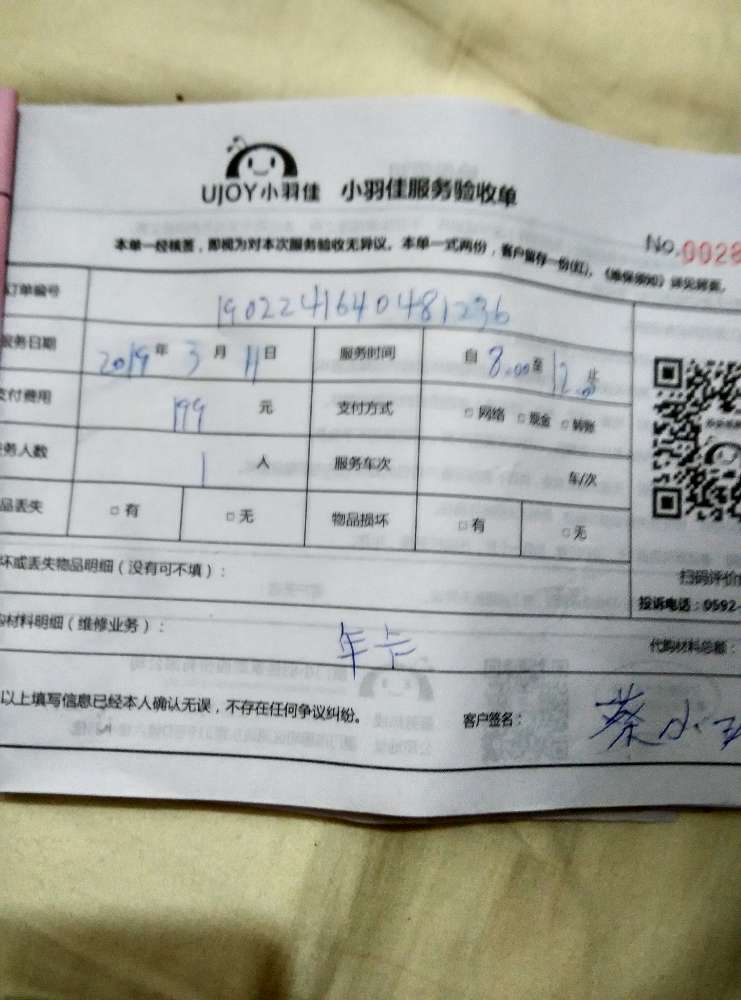 UJOY小羽佳 小羽佳服务验收单
No.0028
本单一经核签，即视为对本次服务验收无异议。本单一式两份，客户留存一份(红)。《维保须知》详见背面。
订单编号 1902241640481236
服务日期 2019年3月11日 服务时间 自8:00至12:00止
支付费用 199元 支付方式 □网络 □现金 □转账
务人数 1人 服务车次 车/次
品丢失 □有 □无 物品损坏 □有 □无
坏或丢失物品明细（没有可不填）：
扫码评价
投诉电话：0592-
购材料明细（维修业务）： 年卡 代购材料总额：
以上填写信息已经本人确认无误，不存在任何争议纠纷。 客户签名： 蔡小